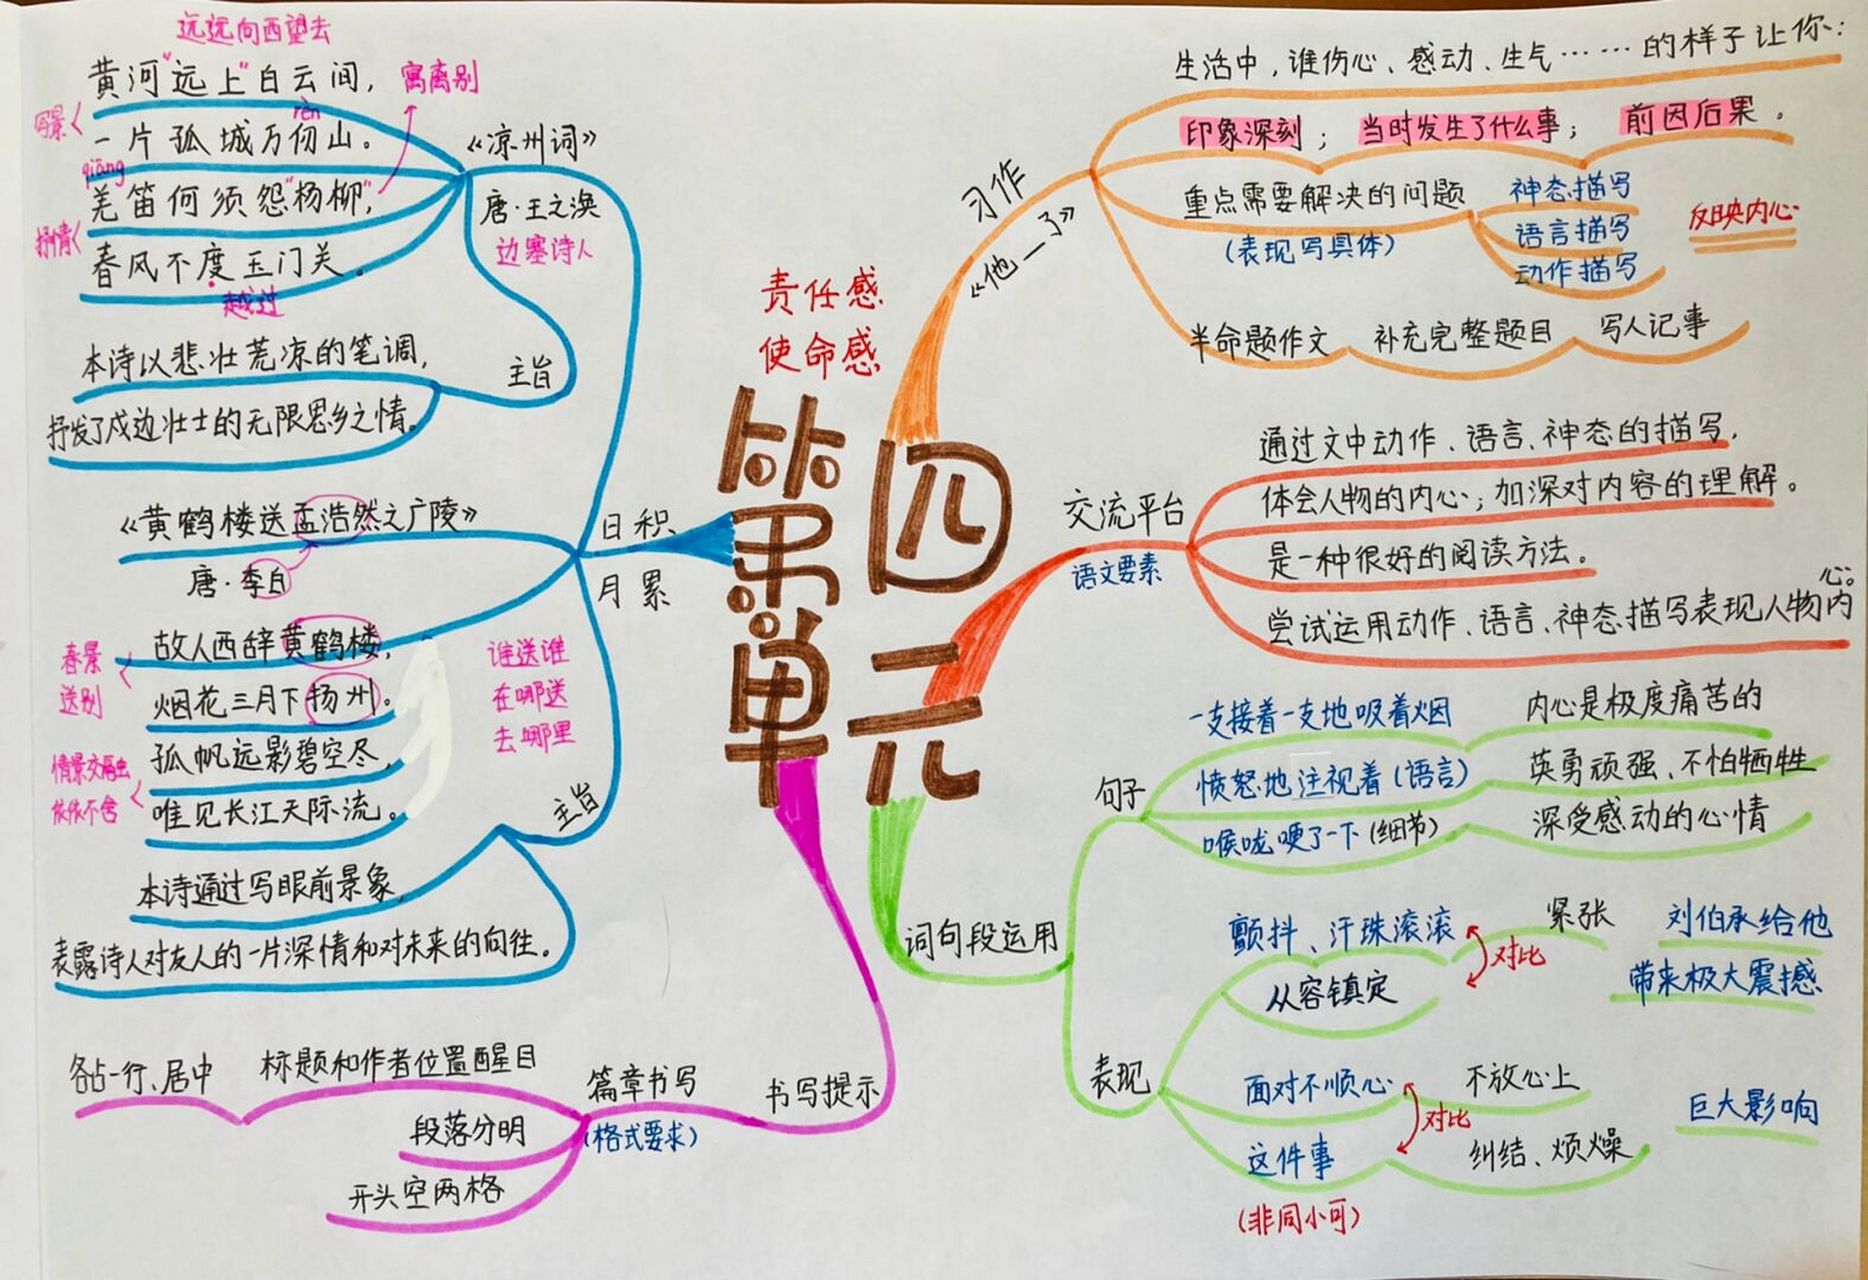 责任感
使命感
第四
单元
习作
《他__了》
生活中,谁伤心、感动、生气……的样子让你:
印象深刻;当时发生了什么事;前因后果。
重点需要解决的问题
(表现写具体)
神态描写
语言描写
动作描写
反映内心
半命题作文 补充完整题目 写人记事
交流平台
语文要素
通过文中动作、语言、神态的描写,
体会人物的内心;加深对内容的理解。
是一种很好的阅读方法。
尝试运用动作、语言、神态描写表现人物内
心。
词句段运用
句子
一支接着一支地吸着烟 内心是极度痛苦的
愤怒地注视着(语言) 英勇顽强、不怕牺牲
喉咙哽了一下(细节) 深受感动的心情
表现
颤抖、汗珠滚滚 紧张
从容镇定
对比
刘伯承给他
带来极大震撼
面对不顺心 不放心上
这件事 纠结、烦燥
对比
(非同小可)
巨大影响
书写提示
篇章书写
(格式要求)
标题和作者位置醒目
各占一行、居中
段落分明
开头空两格
日积
月累
《凉州词》
唐·王之涣
边塞诗人
远远向西望去
黄河"远上"白云间,
寓离别
写景
rèn
一片孤城万仞山。
qiāng
羌笛何须怨"杨柳",
抒情
春风不度玉门关。
越过
主旨
本诗以悲壮荒凉的笔调,
抒发了戍边壮士的无限思乡之情。
《黄鹤楼送孟浩然之广陵》
唐·李白
故人西辞黄鹤楼,
春景
送别
烟花三月下扬州。
孤帆远影碧空尽,
情景交融
依依不舍
唯见长江天际流。
谁送谁
在哪送
去哪里
主旨
本诗通过写眼前景象,
表露诗人对友人的一片深情和对未来的向往。